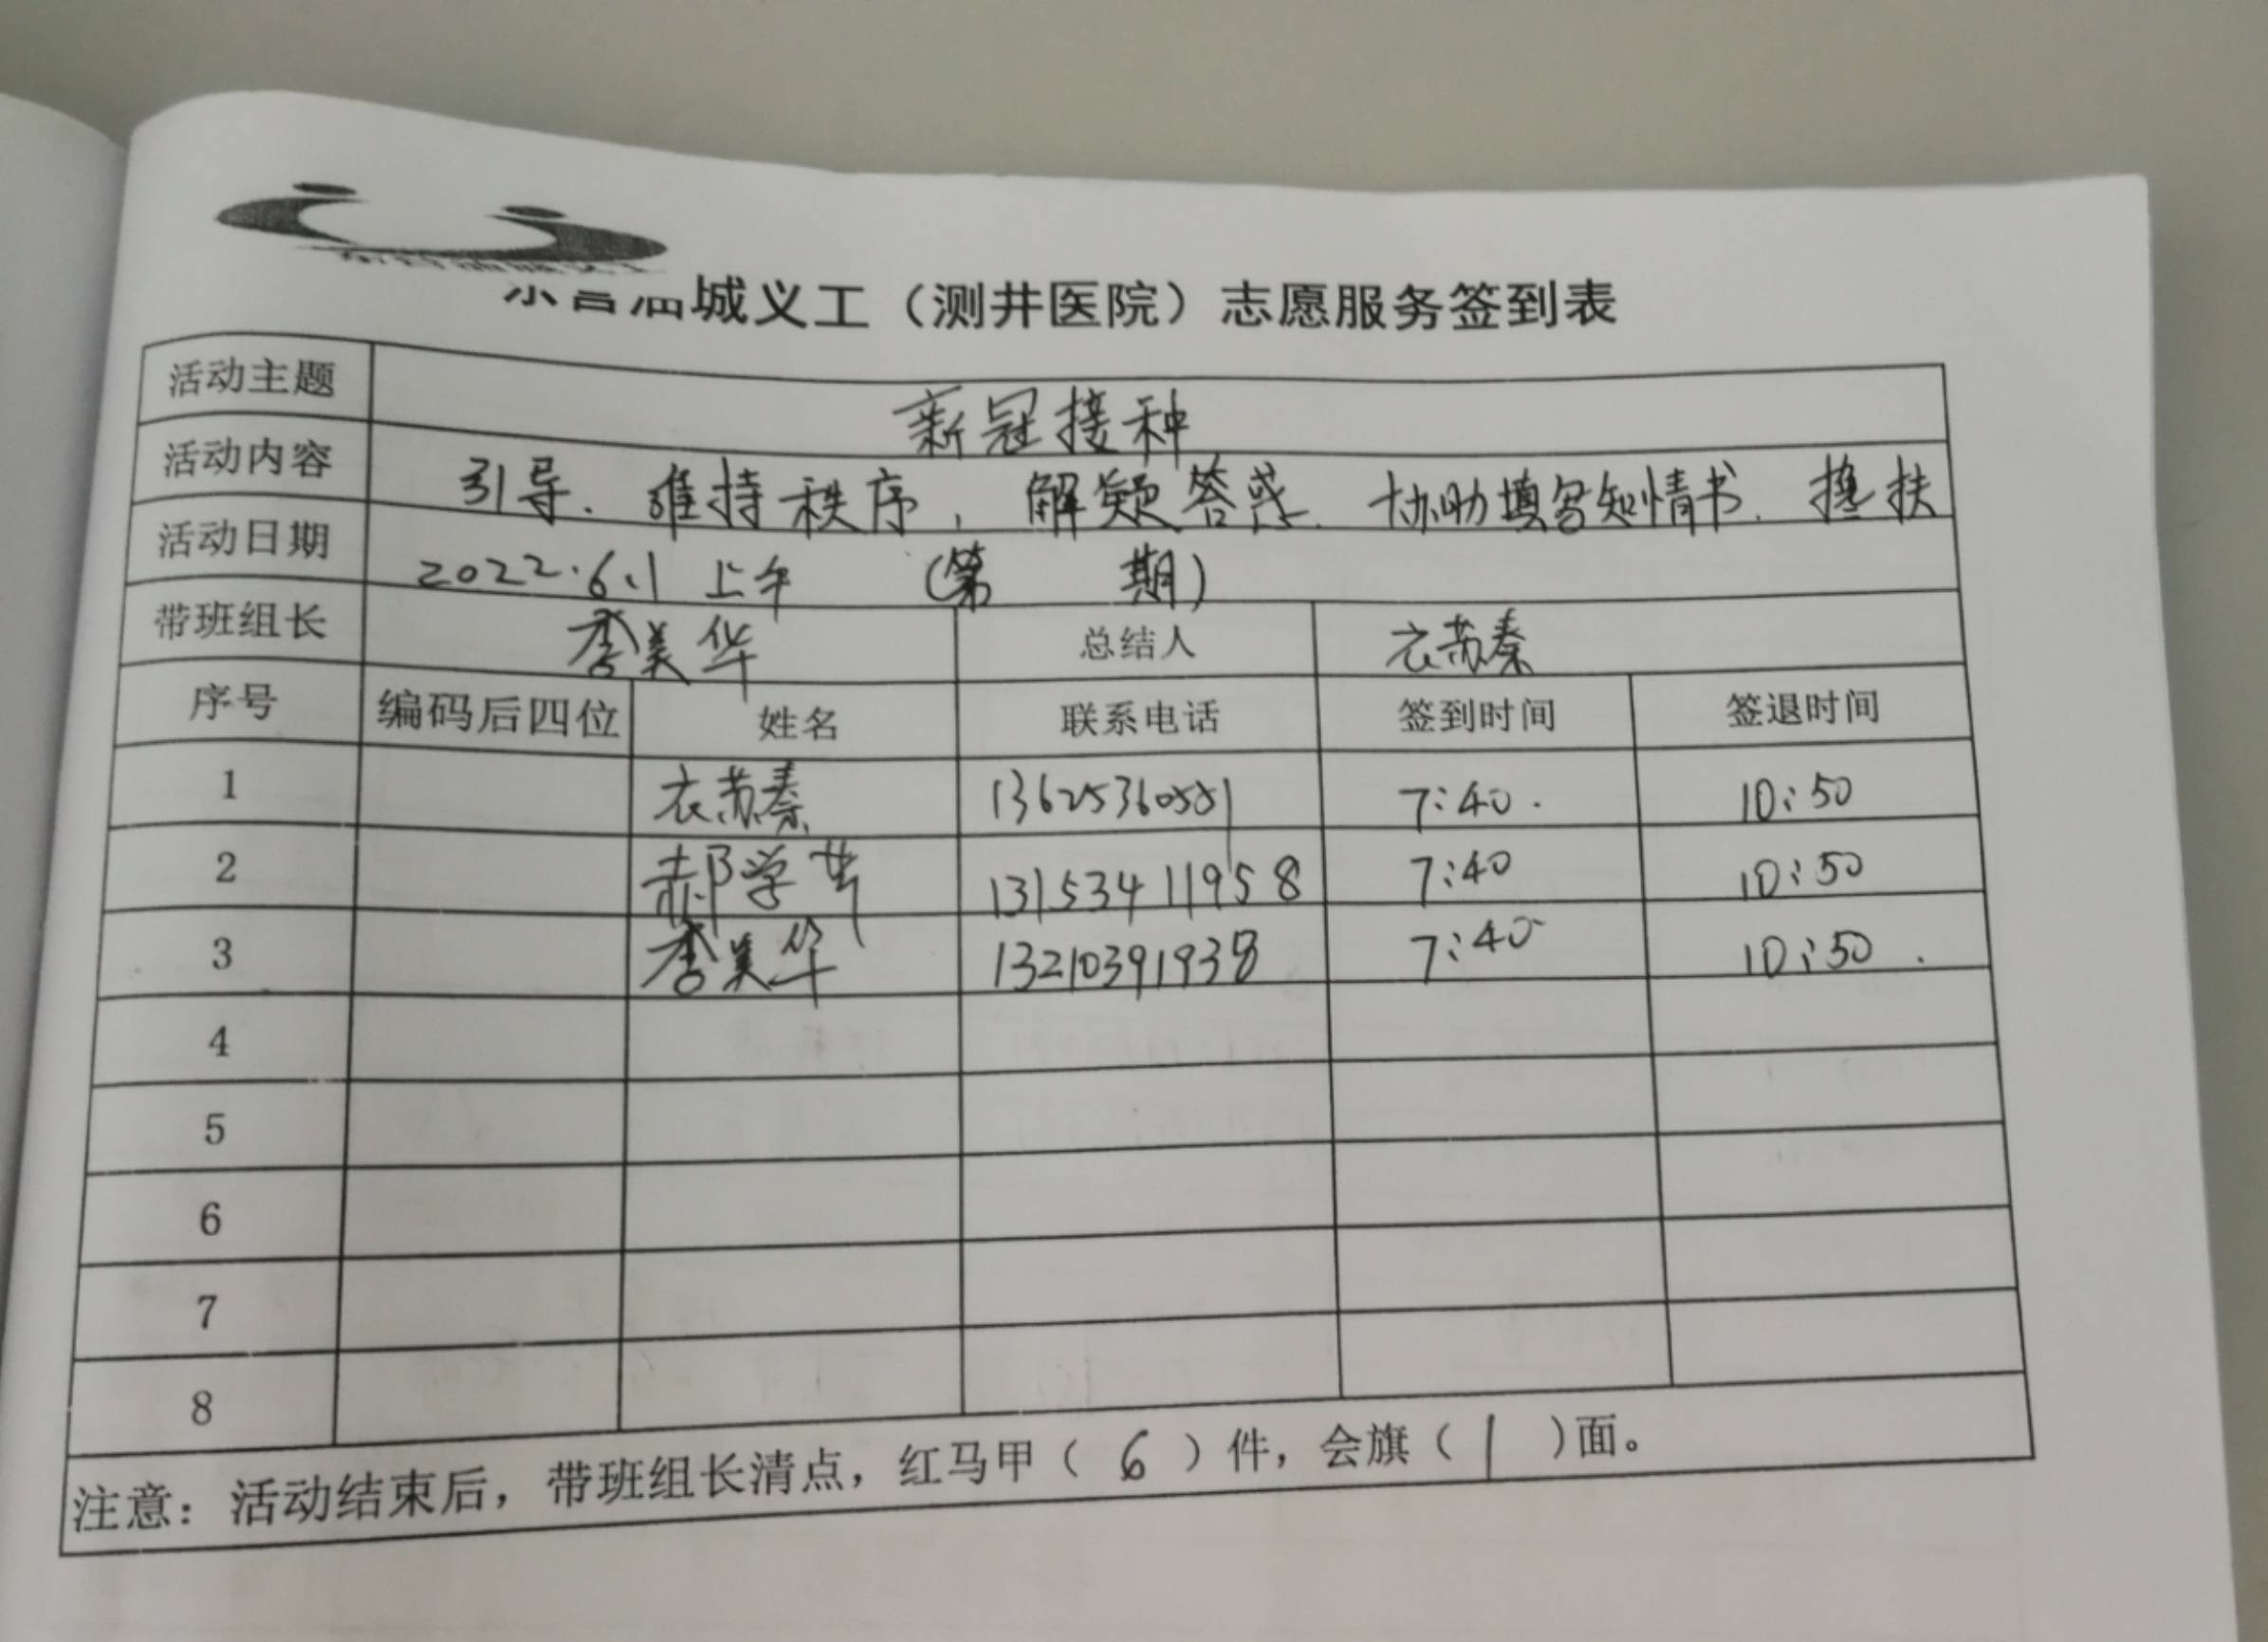 东营油城义工（测井医院）志愿服务签到表
活动主题 新冠接种
活动内容 引导、维持秩序，解疑答惑、协助填写知情书、搀扶
活动日期 2022.6.1 上午 (第 期)
带班组长 李美华 总结人 衣苏秦
序号 编码后四位 姓名 联系电话 签到时间 签退时间
1 衣苏秦 7:40. 10:50
2 郝学 13153411958 7:40 10:50
3 李美华 13210391938 7:40 10:50.
4
5
6
7
8
注意：活动结束后，带班组长清点，红马甲（6）件，会旗（1）面。